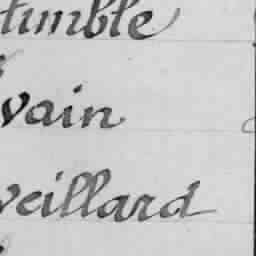 timble
vain
veillard